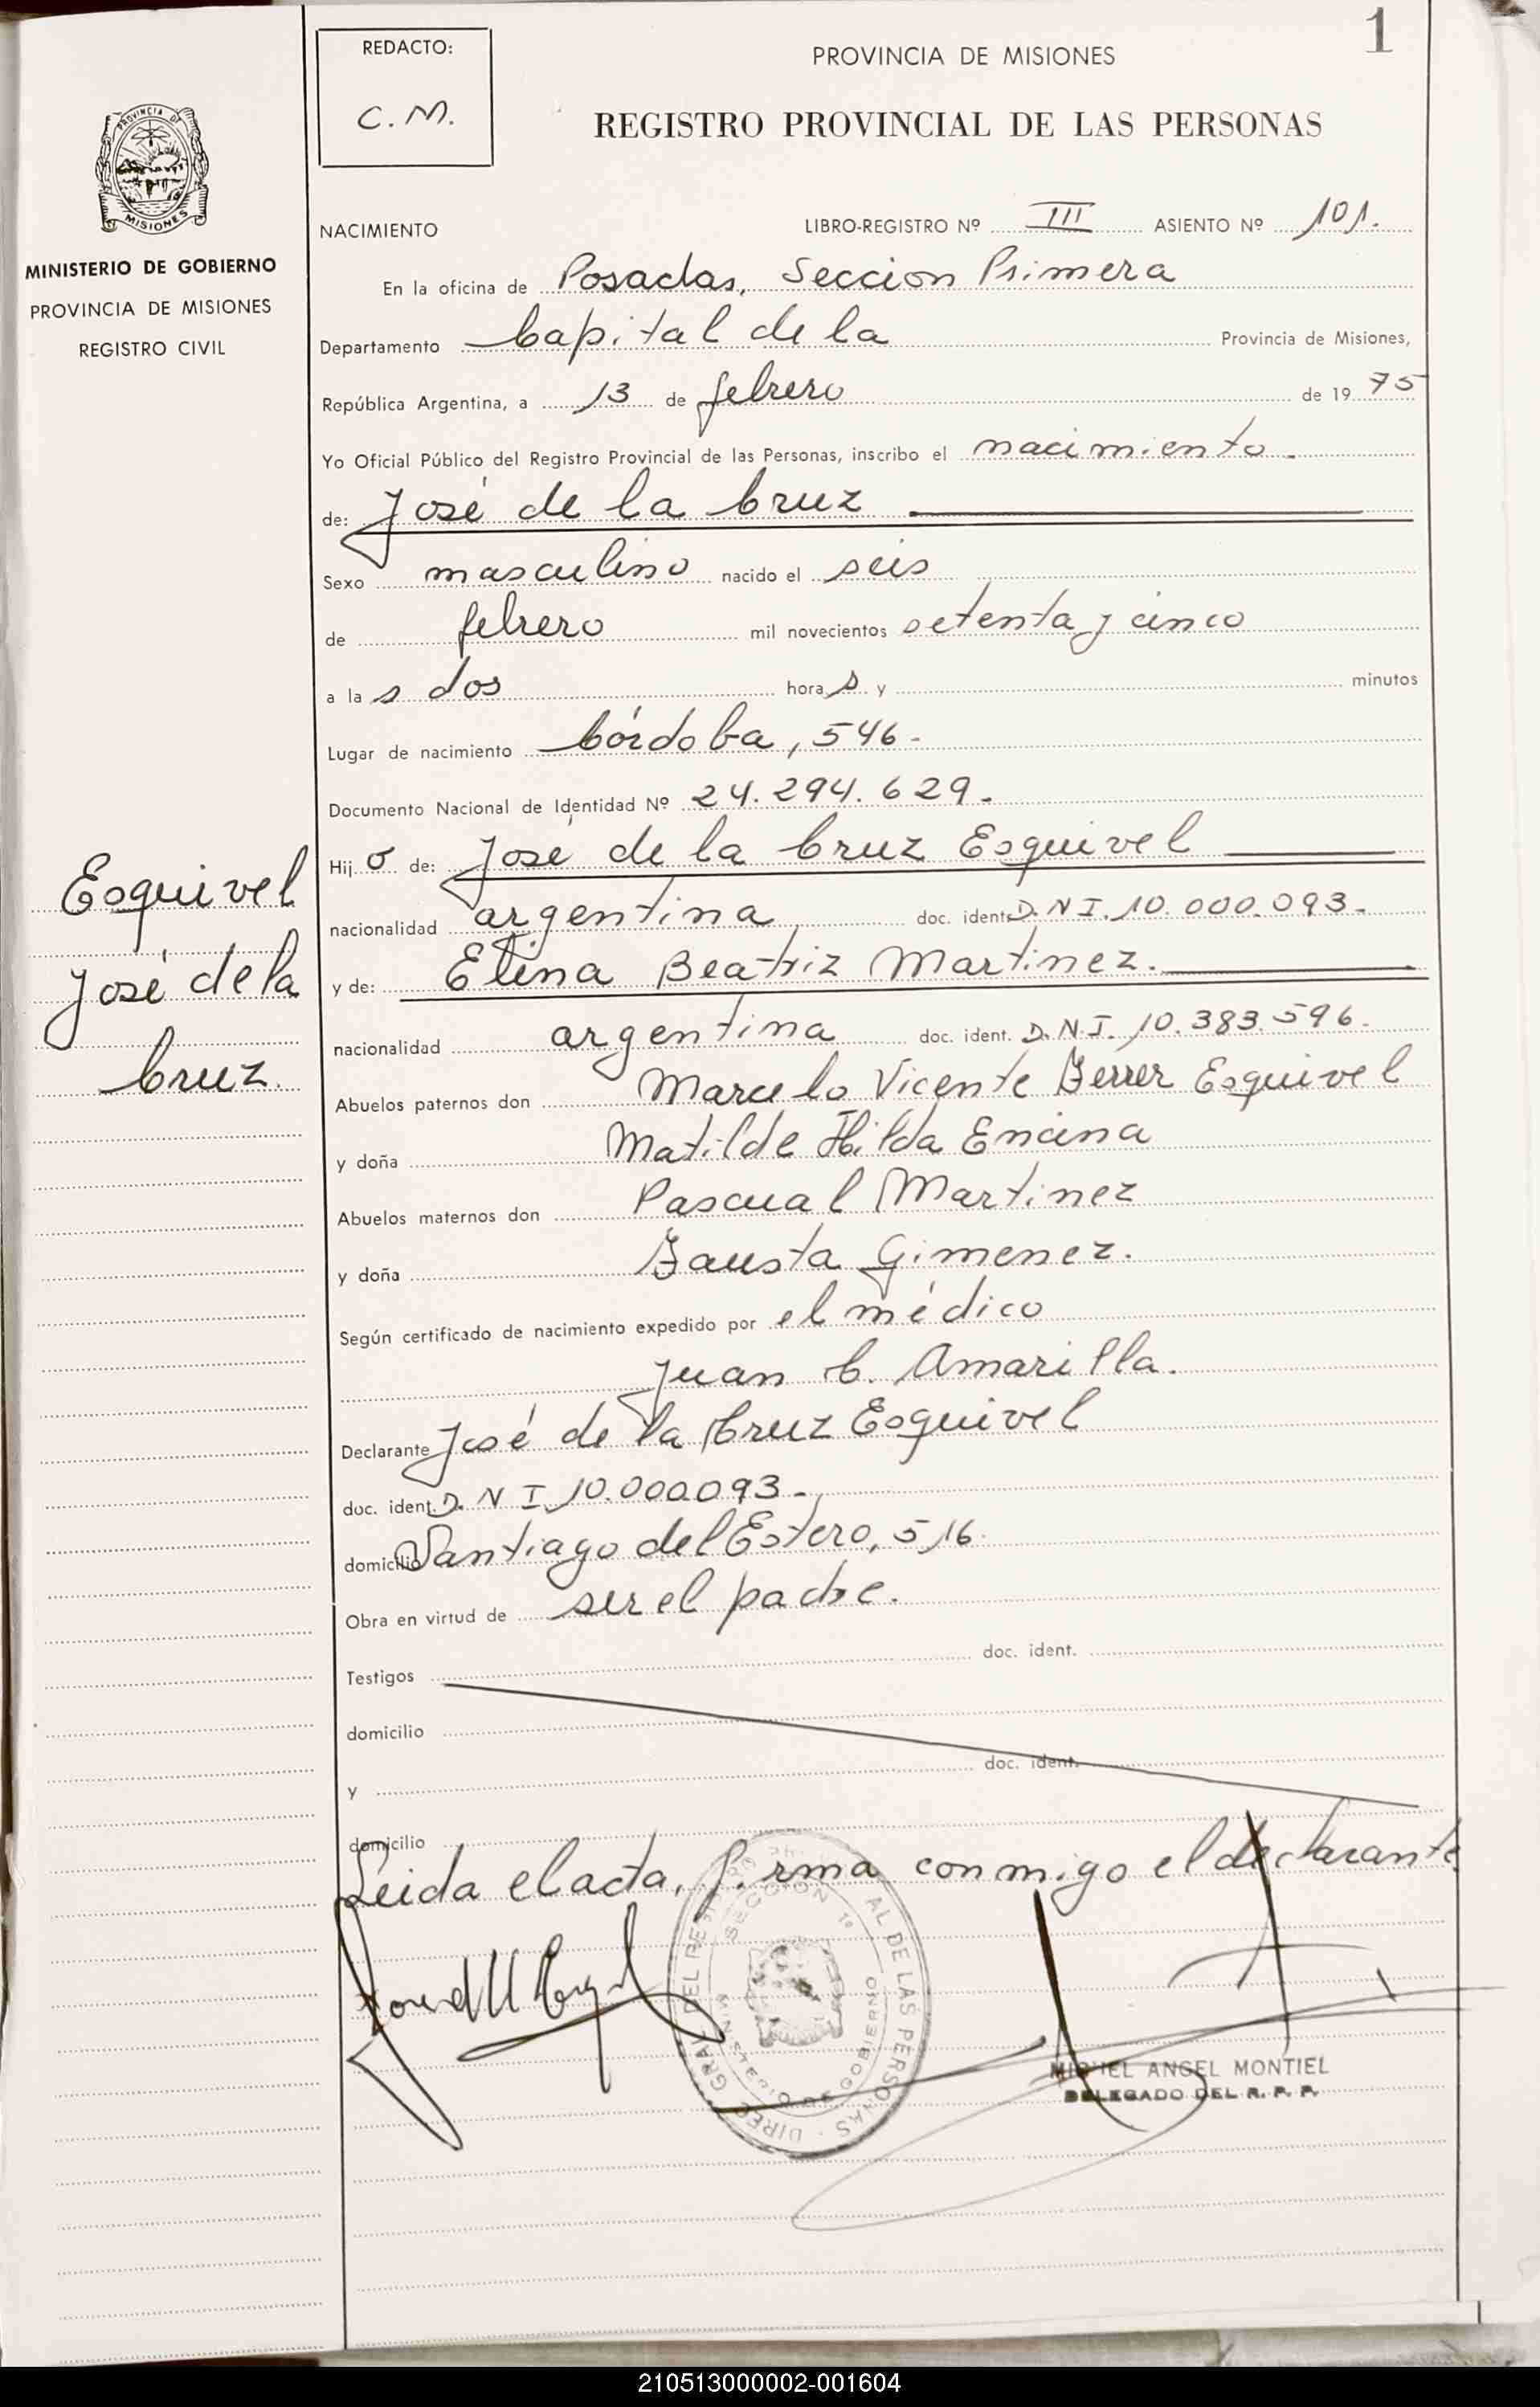 1
REDACTO:
C. M.
PROVINCIA DE MISIONES
REGISTRO PROVINCIAL DE LAS PERSONAS
PROVINCIA DE
MISIONES
MINISTERIO DE GOBIERNO
PROVINCIA DE MISIONES
REGISTRO CIVIL
NACIMIENTO
LIBRO-REGISTRO Nº III ASIENTO Nº 101.
En la oficina de Posadas, Seccion Primera
Departamento Capital de la Provincia de Misiones,
República Argentina, a 13 de febrero de 1975
Yo Oficial Público del Registro Provincial de las Personas, inscribo el nacimiento
de: José de la Cruz
Sexo masculino nacido el seis
de febrero mil novecientos setenta y cinco
a las dos horas y minutos
Lugar de nacimiento Córdoba, 546-
Documento Nacional de Identidad Nº 24.294.629.
Hijo de: José de la Cruz Esquivel
nacionalidad argentina doc. ident. D.N I. 10.000.093.
y de: Elina Beatriz Martinez.
nacionalidad argentina doc. ident. D.N.I. 10.383.596.
Abuelos paternos don Marcelo Vicente Ferrer Esquivel
y doña Matilde Hilda Encina
Abuelos maternos don Pascual Martinez
y doña Fausta Gimenez.
Según certificado de nacimiento expedido por el médico
Juan C. Amarilla.
Declarante José de la Cruz Esquivel
doc. ident. D. N I 10.000.093.
domicilio Santiago del Estero, 516.
Obra en virtud de ser el padre.
Testigos doc. ident.
domicilio
y doc. ident.
domicilio
Leida el acta, firma conmigo el declarante
Esquivel
José de la
Cruz.
SECCION 1ª
AL DE LAS PERSONAS
MIGUEL ANGEL MONTIEL
DELEGADO DEL R. P. P.
210513000002-001604